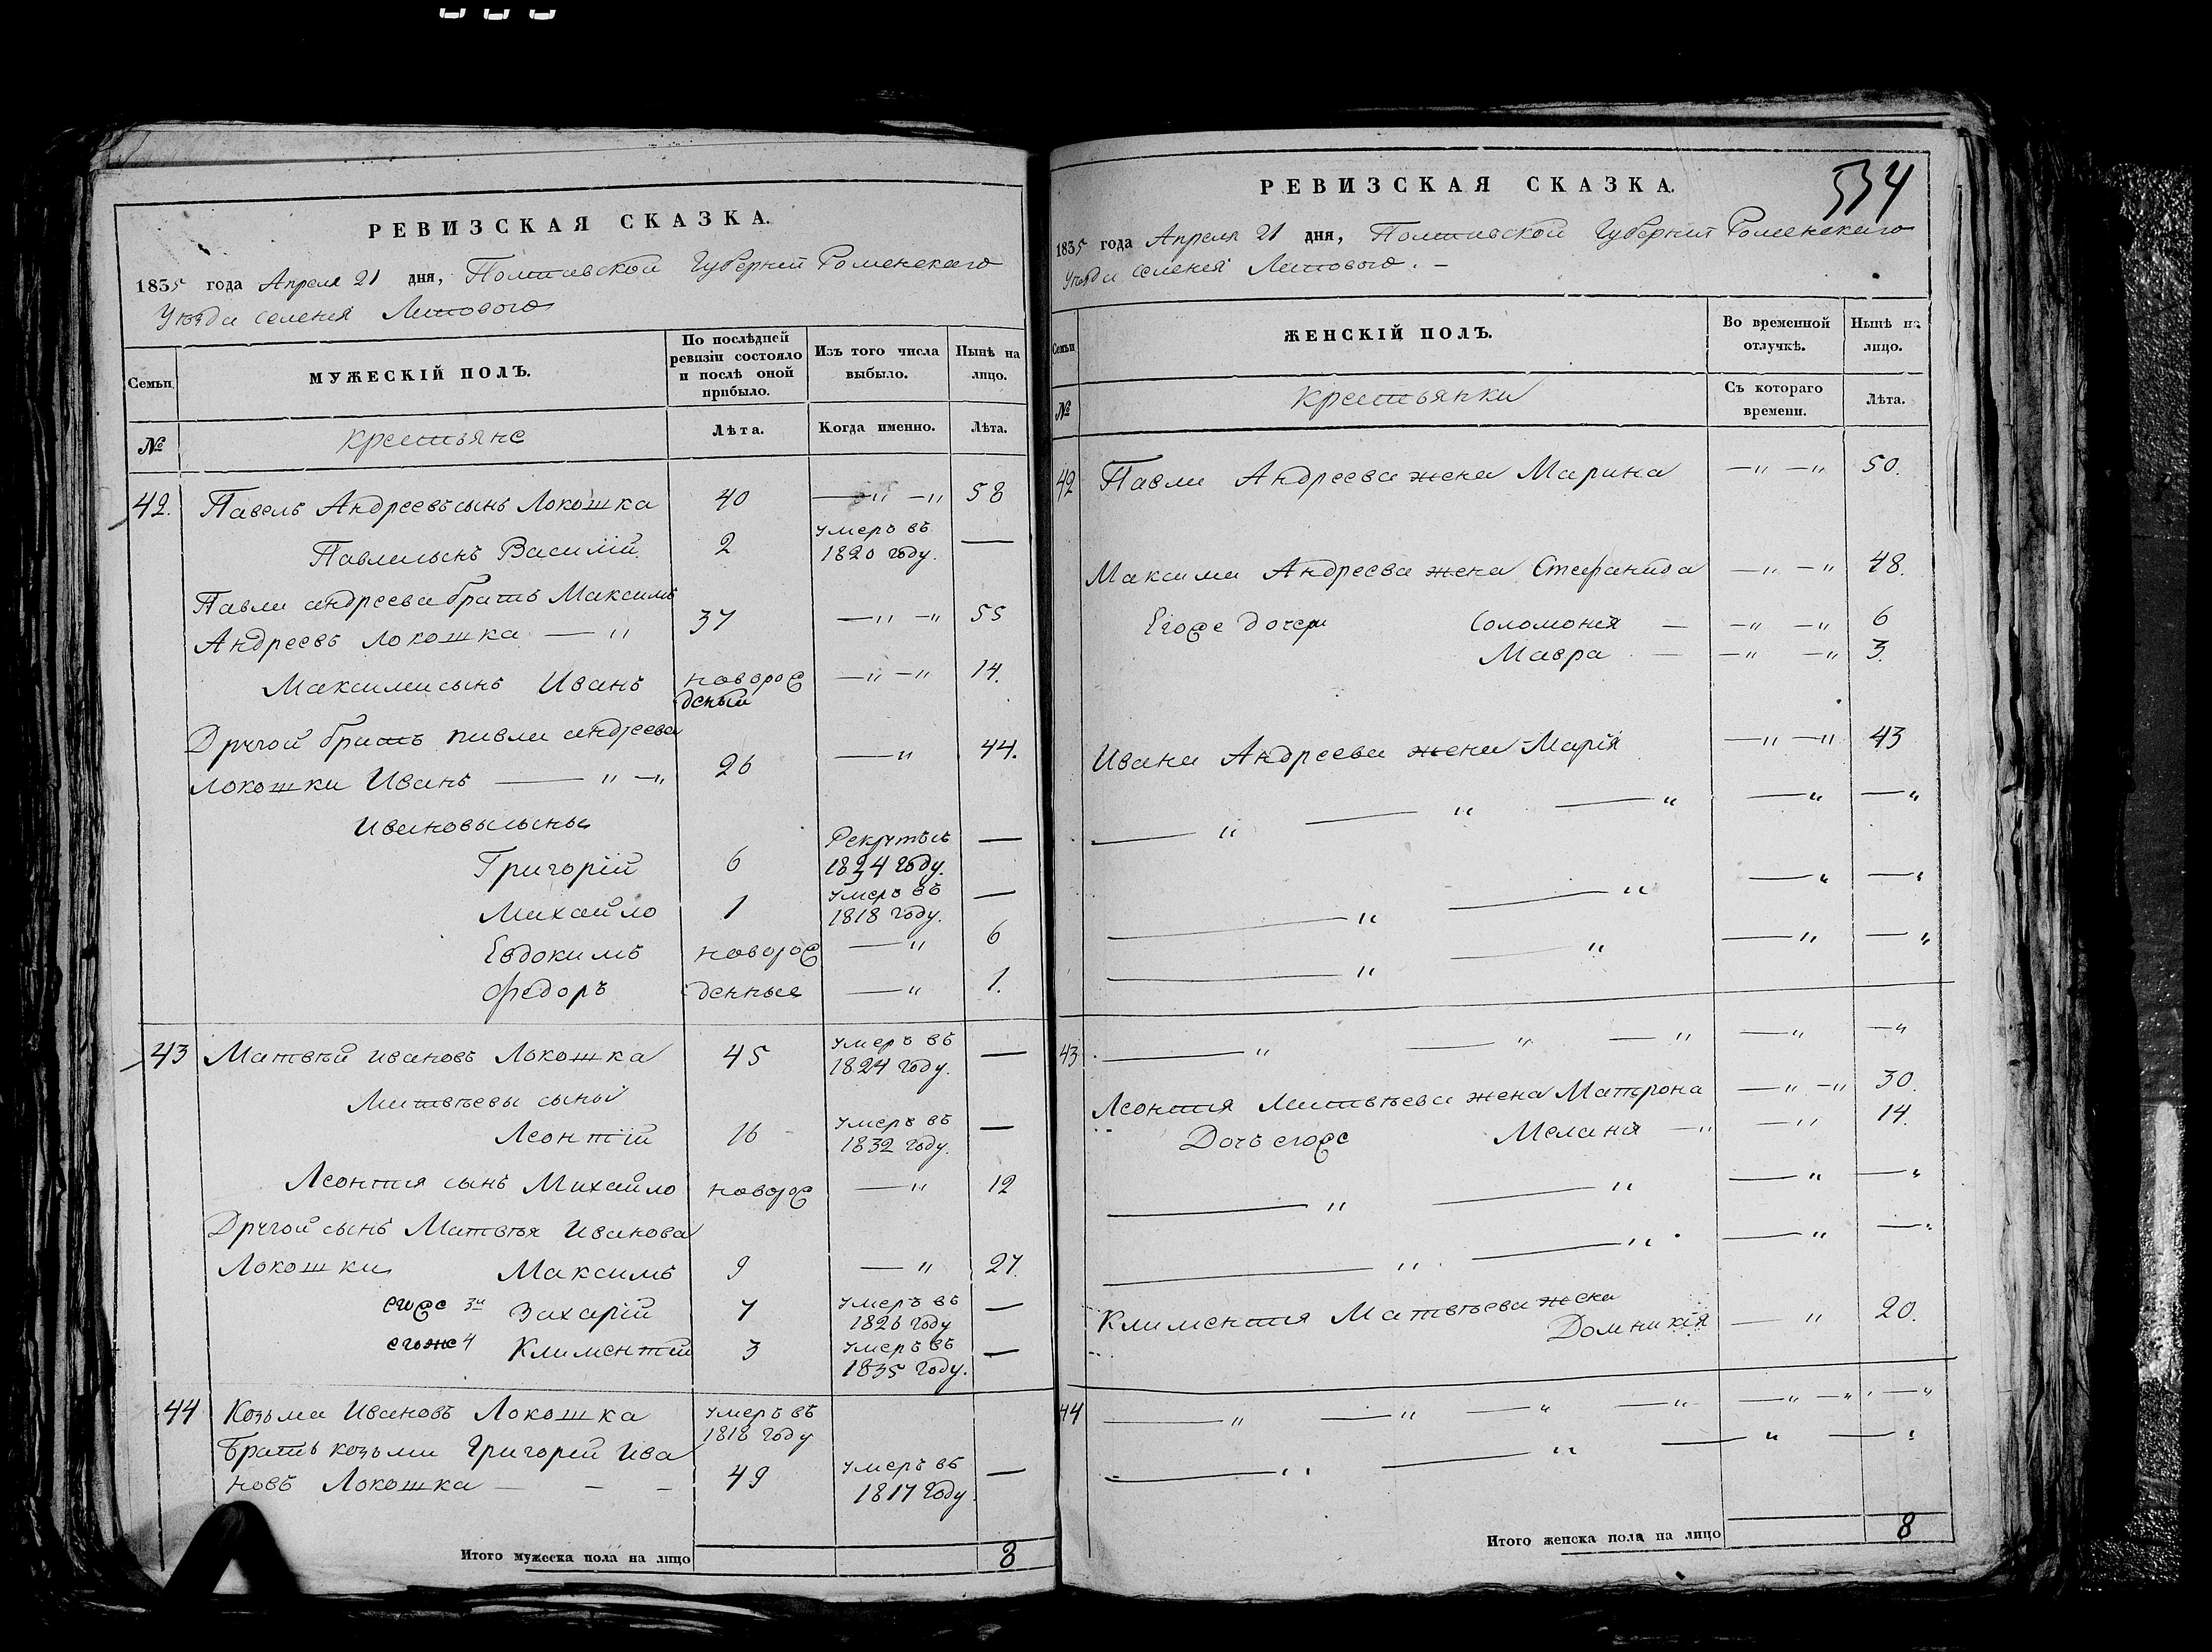 РЕВИЗСКАЯ СКАЗКА.
1835 года Апреля 21 дня, Полтавской Губерніи Роменскаго
Уѣзда селенія Липового
Семьи
МУЖЕСКІЙ ПОЛЪ.
По послѣдней ревизіи состояло и послѣ оной прибыло.
Изъ того числа выбыло.
Нынѣ на лицо.
№
крестьяне
Лѣта.
Когда именно.
Лѣта.
42. Павелъ Андреевъ сынъ Локошка 40 —„ —„ 58
Павла сынъ Василій 2 умеръ въ 1820 году. —
Павла андреева братъ Максимъ
Андреевъ Локошка —„ 37 —„ —„ 55
Максима сынъ Иванъ новорожденый —„ —„ 14.
Другой братъ павла андреева
Локошки Иванъ —„ —„ 26 —„ 44.
Ивановы сыны
Григорій 6 Рекрутъ съ 1834 году. —
Михайло 1 умеръ въ 1818 году. —
Евдокимъ новорож —„ 6
Федоръ денные —„ 1.
43 Матвѣй ивановъ Локошка 45 умеръ въ 1824 году. —
Матвѣевы сыны
Леонтій 16 умеръ въ 1832 году. —
Леонтія сынъ Михайло новорож —„ 12
Другой сынъ Матвѣя Иванова
Локошки Максимъ 9 —„ 27.
егоже 3й Захарій 7 умеръ въ 1826 году —
егоже 4 Климентій 3 умеръ въ 1835 году. —
44 Козьма Ивановъ Локошка умеръ въ 1818 году
Братъ козьми Григорій Ива
новъ Локошка — — — 49 умеръ въ 1817 году —
Итого мужеска пола на лицо 8
534
РЕВИЗСКАЯ СКАЗКА.
1835 года Апреля 21 дня, Полтавской Губерніи Роменскаго
Уѣзда селенія Липового. —
Семьи
ЖЕНСКІЙ ПОЛЪ.
Во временной отлучкѣ.
Нынѣ на лицо.
№
крестьянки
Съ котораго времени.
Лѣта.
42 Павла Андреева жена Марина —„ —„ 50.
Максима Андреева жена Стефанида —„ —„ 48.
Егоже дочери Соломонія — —„ —„ 6
Мавра — —„ —„ 3.
Ивана Андреева жена Марія —„ —„ 43
—„ —„ —„ —„ —„
—„ —„ —„ —„
—„ —„ —„ —„
43 —„ —„ —„ —„ —„
Леонтія Матвѣева жена Матрона —„ —„ 30.
Дочь егоже Меланія —„ —„ 14.
—„ —„ —„ —„
—„ —„ —„ —„
Климентія Матвѣева жена
Домникія —„ 20.
44 —„ —„ —„ —„ —„ —„ —„
—„ —„ —„ —„
Итого женска пола на лицо 8